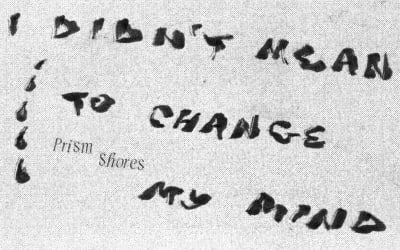 I DIDN'T MEAN
TO CHANGE
Prism Shores
MY MIND